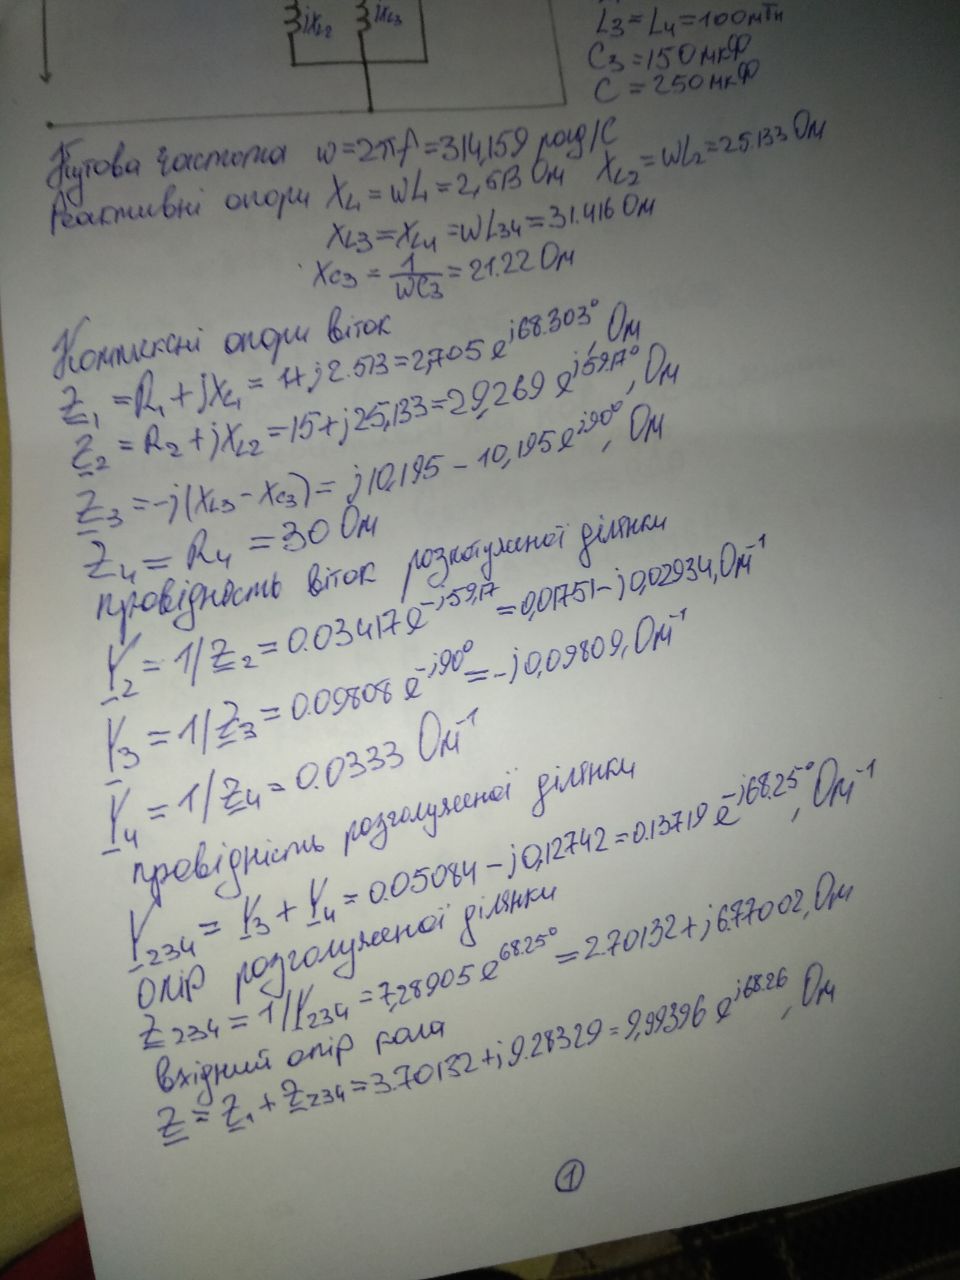 jXL2 jXL3
L3 = L4 = 100мТн
C3 = 150мкФ
C = 250мкФ
Кутова частота w = 2πf = 314,159 рад/С
Реактивні опори XL1 = WL1 = 2,513 Ом XL2 = WL2 = 25.133 Ом
XL3 = XL4 = WL34 = 31.416 Ом
XC3 = 1/WC3 = 21.22 Ом
Комплексні опори віток
Z1 = R1 + jXL1 = 1 + j2.513 = 2,705 e^j68.303°, Ом
Z2 = R2 + jXL2 = 15 + j25,133 = 29,269 e^j59.17°, Ом
Z3 = -j(XL3 - XC3) = j10,195 - 10,195 e^j90°, Ом
Z4 = R4 = 30 Ом
Провідность віток розгалуженої ділянки
Y2 = 1/Z2 = 0.03417 e^-j59,17 = 0,01751 - j0,02934, Ом^-1
Y3 = 1/Z3 = 0.09808 e^-j90° = -j0,09809, Ом^-1
Y4 = 1/Z4 = 0.0333 Ом^-1
Провідність розголуженої ділянки
Y234 = Y3 + Y4 = 0.05084 - j0,12742 = 0.13719 e^-j68.25°, Ом^-1
Опір розголуженої ділянки
Z234 = 1/Y234 = 7,28905 e^68.25° = 2.70132 + j6.77002, Ом
Вхідний опір кола
Z = Z1 + Z234 = 3.70132 + j9.28329 = 9,99396 e^j68.26, Ом
1